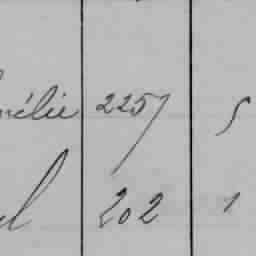 mélie 2257 5
202 1